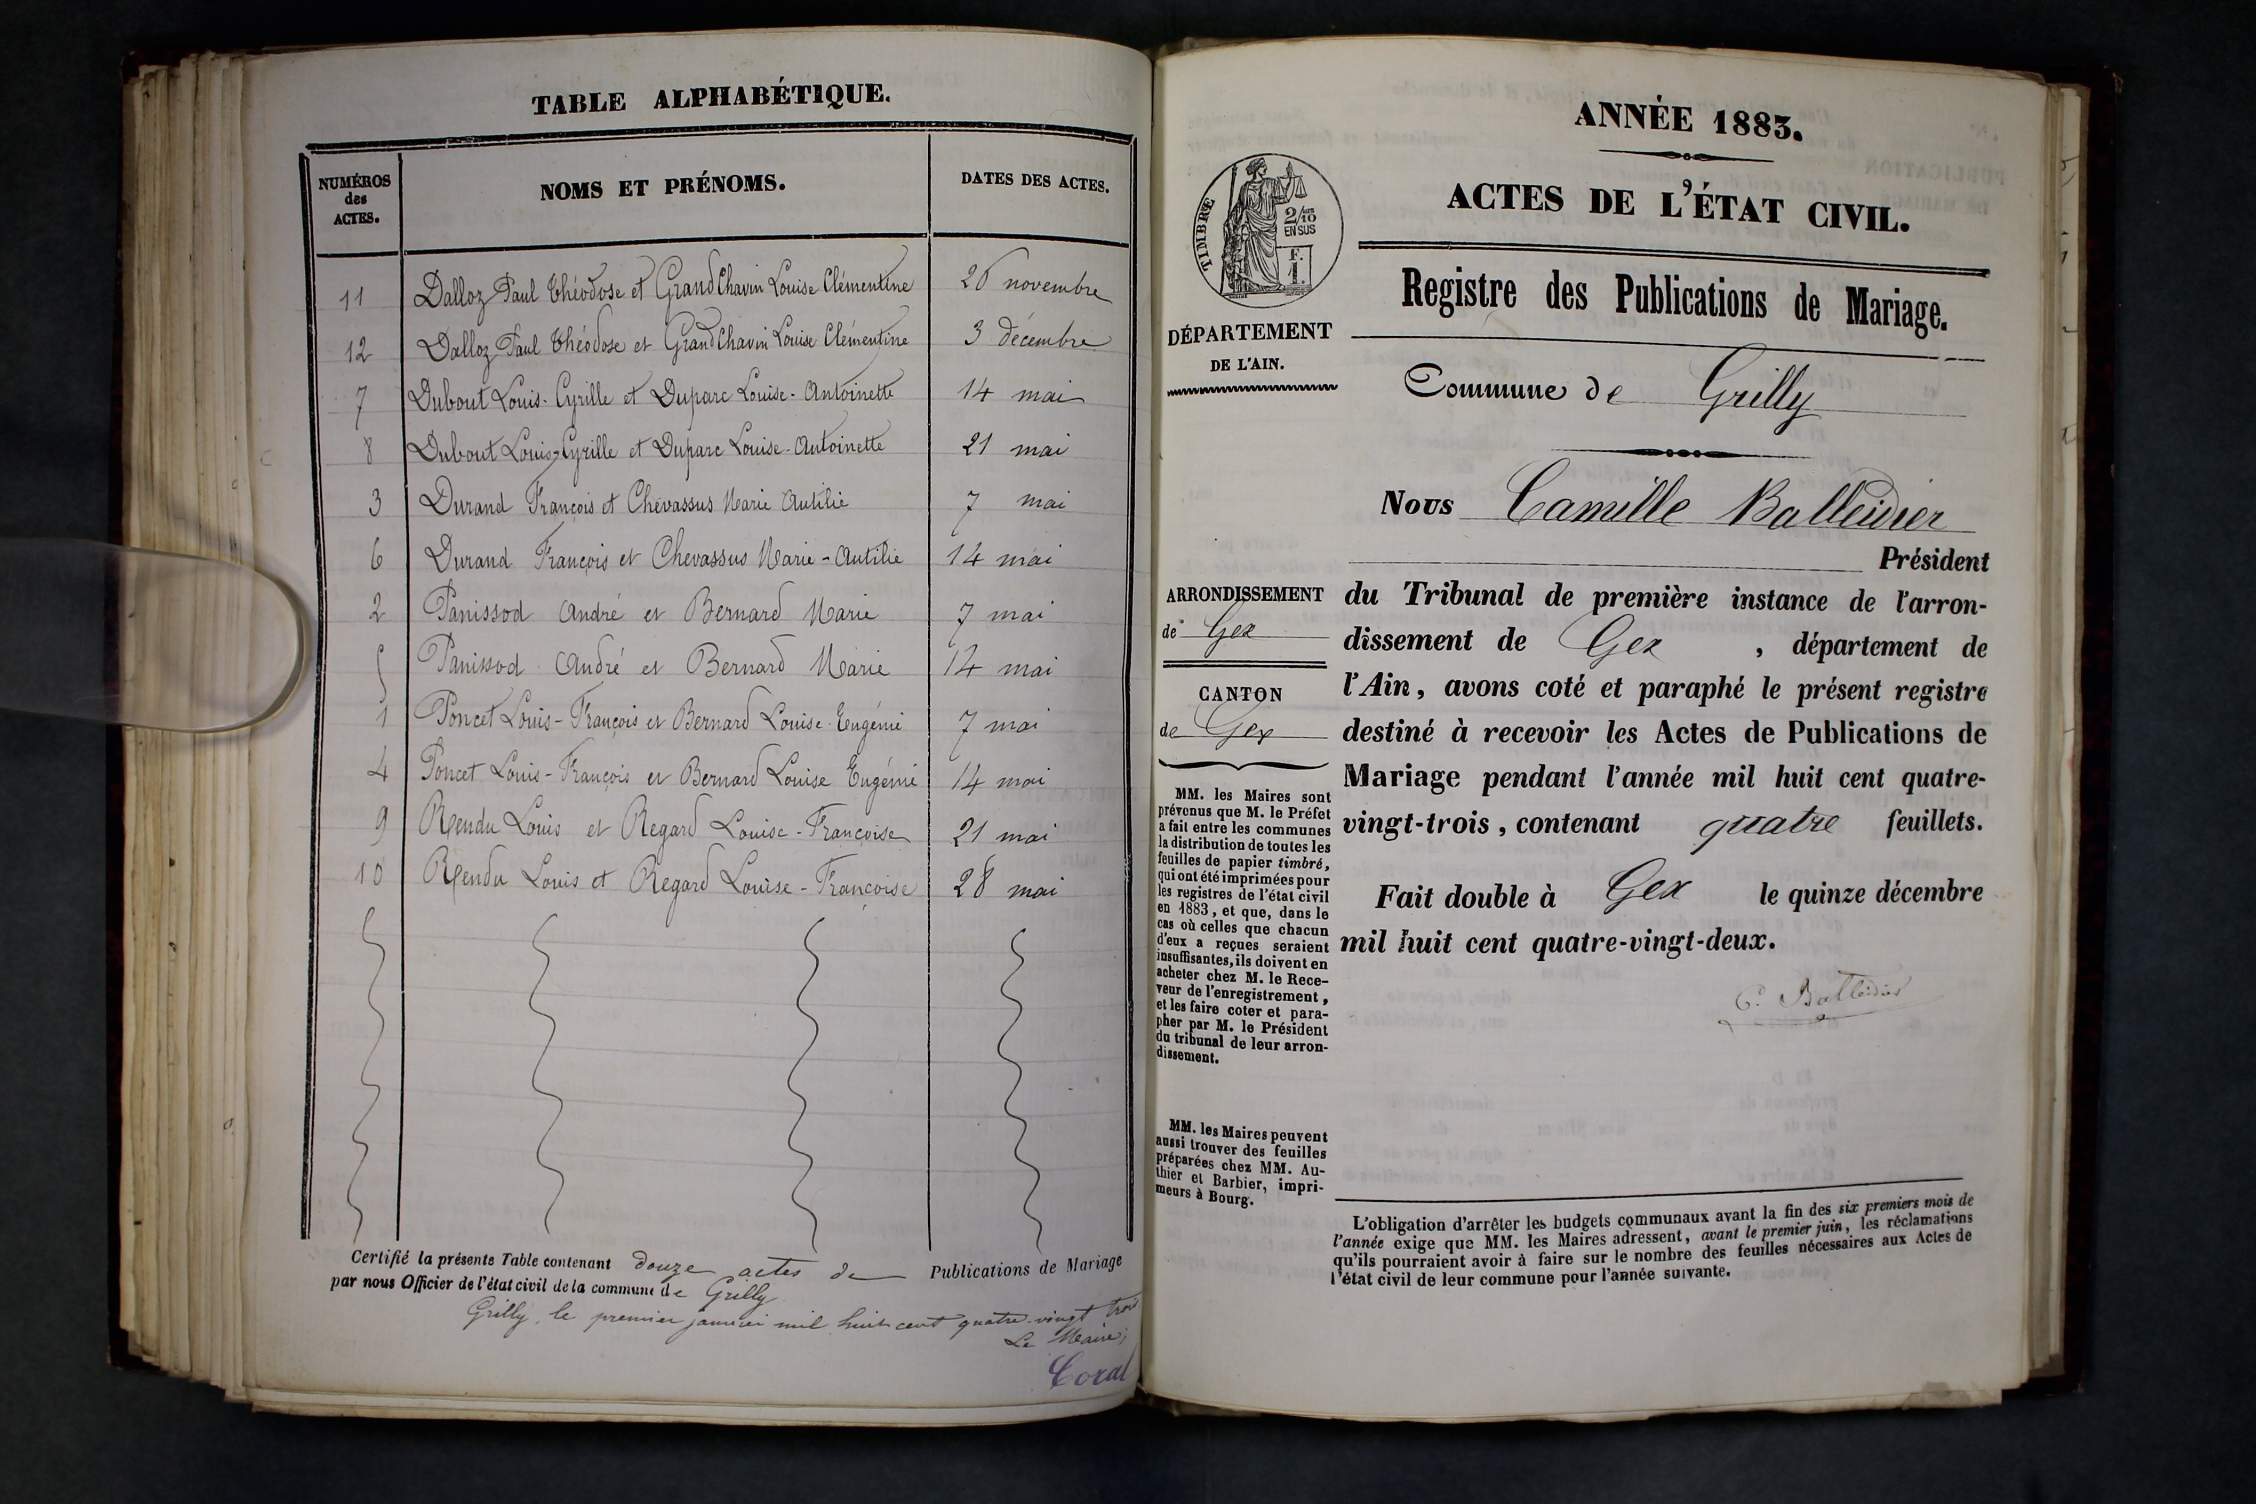 TABLE ALPHABÉTIQUE.
NUMÉROS des ACTES. NOMS ET PRÉNOMS. DATES DES ACTES.
11 Dalloz Paul Théodose et GrandChavin Louise Clémentine 26 novembre
12 Dalloz Paul Théodose et GrandChavin Louise Clémentine 3 décembre
7 Dubout Louis-Cyrille et Duparc Louise-Antoinette 14 mai
8 Dubout Louis-Cyrille et Duparc Louise-Antoinette 21 mai
3 Durand François et Chevassus Marie Autilie 7 mai
6 Durand François et Chevassus Marie-Autilie 14 mai
2 Panissod André et Bernard Marie 7 mai
5 Panissod André et Bernard Marie 14 mai
1 Poncet Louis-François et Bernard Louise Eugénie 7 mai
4 Poncet Louis-François et Bernard Louise Eugénie 14 mai
9 Rendu Louis et Regard Louise-Françoise 21 mai
10 Rendu Louis et Regard Louise-Françoise 28 mai
Certifié la présente Table contenant douze actes de Publications de Mariage
par nous Officier de l'état civil de la commune de Grilly
Grilly, le premier janvier mil huit cent quatre-vingt trois
Le Maire,
Coral
ANNÉE 1883.
ACTES DE L'ÉTAT CIVIL.
Registre des Publications de Mariage.
Commune de Grilly
Nous Camille Balleidier
Président
du Tribunal de première instance de l'arron-
dissement de Gex, département de
l'Ain, avons coté et paraphé le présent registre
destiné à recevoir les Actes de Publications de
Mariage pendant l'année mil huit cent quatre-
vingt-trois, contenant quatre feuillets.
Fait double à Gex le quinze décembre
mil huit cent quatre-vingt-deux.
C. Balleidier
TIMBRE
2/10
EN SUS
F.
1
DÉPARTEMENT
DE L'AIN.
ARRONDISSEMENT
de Gex
CANTON
de Gex
MM. les Maires sont
prévenus que M. le Préfet
a fait entre les communes
la distribution de toutes les
feuilles de papier timbré,
qui ont été imprimées pour
les registres de l'état civil
en 1883, et que, dans le
cas où celles que chacun
d'eux a reçues seraient
insuffisantes, ils doivent en
acheter chez M. le Rece-
veur de l'enregistrement,
et les faire coter et para-
pher par M. le Président
du tribunal de leur arron-
dissement.
MM. les Maires peuvent
aussi trouver des feuilles
préparées chez MM. Au-
thier et Barbier, impri-
meurs à Bourg.
L'obligation d'arrêter les budgets communaux avant la fin des six premiers mois de
l'année exige que MM. les Maires adressent, avant le premier juin, les réclamations
qu'ils pourraient avoir à faire sur le nombre des feuilles nécessaires aux Actes de
l'état civil de leur commune pour l'année suivante.